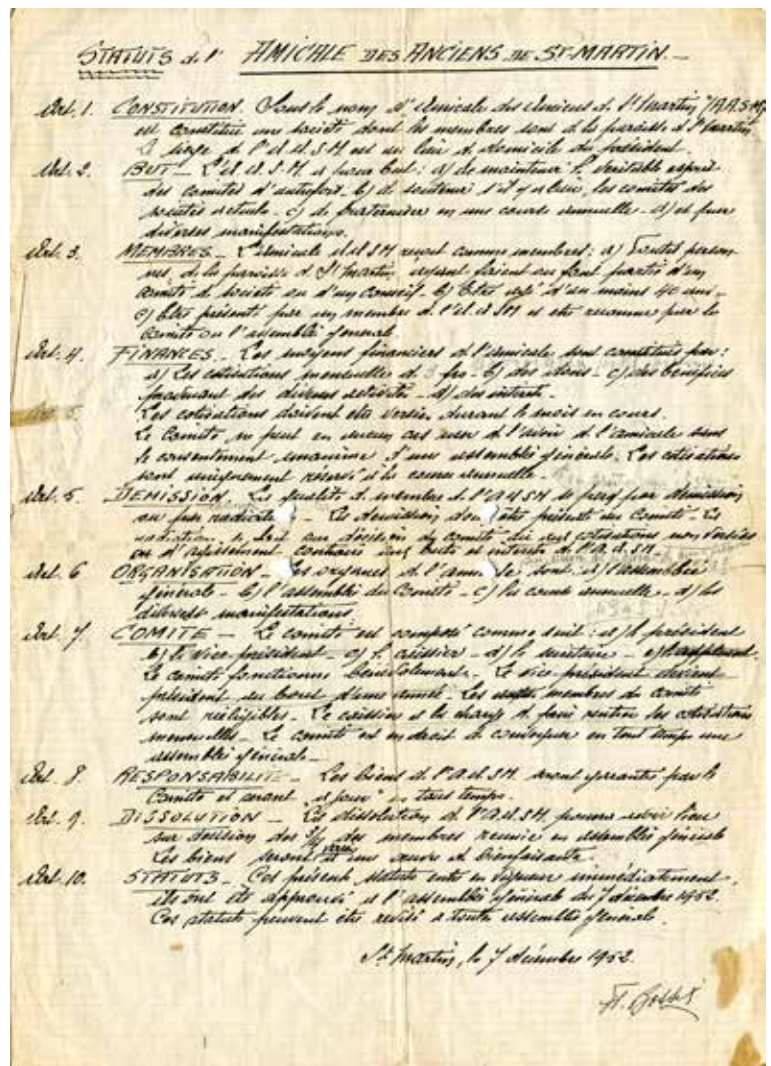 STATUTS de l' AMICALE DES ANCIENS DE ST-MARTIN.-
Art. 1. CONSTITUTION. Sous le nom d'Amicale des Anciens de St Martin (A.A.S.M)
est constituée une société dont les membres sont de la paroisse de St Martin
Le siège de l'A.A.S.M est au lieu de domicile du président.
Art. 2. BUT - L'A.A.S.M. a pour but : a) de maintenir le véritable esprit
des comités d'autrefois. b) de soutenir s'il y a lieu, les comités des
sociétés actuels - c) de fraterniser en une course annuelle - d) et par
diverses manifestations.
Art. 3. MEMBRES - L'amicale A.A.SM reçoit comme membres : a) Toutes person-
nes, de la paroisse de St Martin ayant faient ou font partie d'un
comité de société ou d'un conseil - b) Etre âgé d'au moins 40 ans -
c) Etre présenté par un membre de l'A.A.SM et être reconnue par le
Comité ou l'assemblée générale.
Art. 4. FINANCES - Les moyens financiers de l'amicale sont constitués par :
a) Les cotisations mensuelle de frs - b) des dons - c) des bénéfices
provenant des diverses activités - d) des intérêts.
Les cotisations doivent être versées durant le mois en cours.
Le Comité ne peut en aucun cas user de l'avoir de l'amicale sans
le consentement unanime d'une assemblée générale. Les cotisations
sont uniquement réservés à la course annuelle.
Art. 5. DEMISSION. La qualité de membre de l'A.A.SM se perd par démission
ou par radiation - La démission doit être présenté au Comité - La
radiation se fait sur décision du comité, aux cotisations non versées
ou d'agissement contraire aux buts et intérêts de l'A.A.SM.
Art. 6 ORGANISATION - Les organes de l'amicale sont : a) l'assemblée
générale - b) l'assemblée du Comité - c) la course annuelle - d) les
diverses manifestations
Art. 7. COMITE - Le comité est composé comme suit : a) le président
b) le vice-président - c) le caissier - d) le secrétaire -
Le comité fonctionne bénévolement. Le vice-président devient
président au bout d'une année. Les membres du comité
sont rééligibles. Le caissier a la charge de faire rentrer les cotisations
mensuelles - Le comité est en droit de convoquer en tout temps une
assemblée générale.
Art. 8. RESPONSABILITE - Les biens de l'A.A.SM. seront garantis par le
Comité et seront "à jour" en tous temps.
Art. 9. DISSOLUTION - La dissolution de l'A.A.SM. pourra avoir lieu
sur décision des des membres réunie en assemblée générale
Les biens seront versés à une œuvre de bienfaisante.
Art. 10. STATUTS - Ces présents statuts entre en vigueur immédiatement,
ils ont été approuvés à l'assemblée générale du 7 décembre 1952.
Ces statuts peuvent être revisé à toute assemblée générale.
St Martin, le 7 décembre 1952.